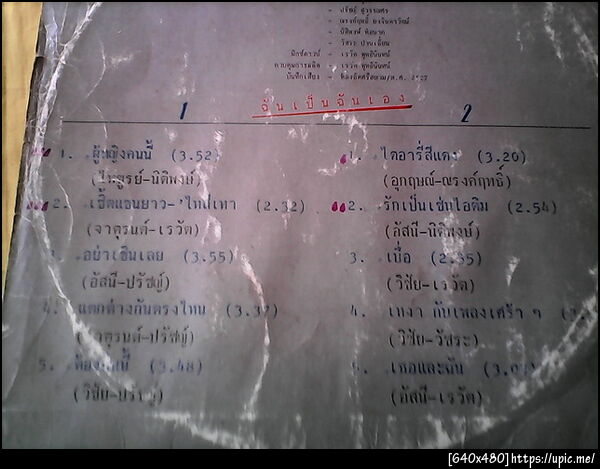 - ปรัชญ์ สุวรรณศร
- ณรงค์ฤทธิ์
- นิติพงษ์ ห่อนาค
- วัสระ ปานเอี่ยม
มิกซ์ดาวน์ - เรวัต พุทธินันทน์
ควบคุมการผลิต - เรวัต พุทธินันทน์
บันทึกเสียง - ห้องอัดศรีสยาม/ส.ค.
ฉันเป็นฉันเอง
1
1. ผู้หญิงคนนี้ (3.52)
(ไพฑูรย์-นิติพงษ์)
2. เชิ้ตแขนยาว-ไทสีเทา (2.32)
(จาตุรนต์-เรวัต)
3. อย่าเขินเลย (3.55)
(อัสนี-ปรัชญ์)
4. แตกต่างกันตรงไหน (3.37)
(จาตุรนต์-ปรัชญ์)
5. (3.48)
(วิชัย-ปรัชญ์)
2
1. ไดอารี่สีแดง (3.20)
(อุกฤษณ์-ณรงค์ฤทธิ์)
2. รักเป็นเช่นไอติม (2.54)
(อัสนี-นิติพงษ์)
3. เบื่อ (2.35)
(วิชัย-เรวัต)
4. เหงา กับเพลงเศร้า ๆ
(วิชัย-วัสระ)
5. เธอและฉัน
(อัสนี-เรวัต)
[640x480]https://upic.me/